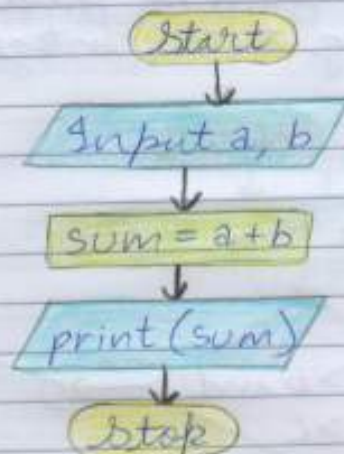 Start
Input a, b
sum = a + b
print (sum)
Stop